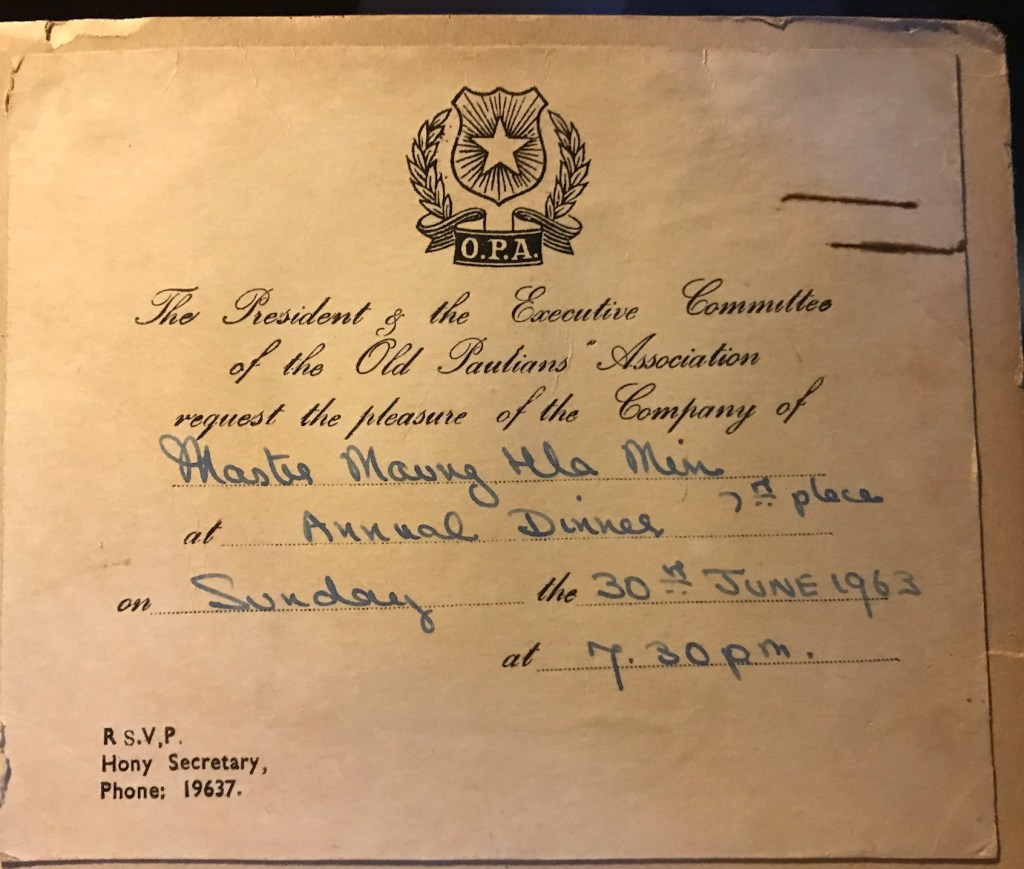 O.P.A.
The President & the Executive Committee
of the Old Paulians" Association
request the pleasure of the Company of
Master Maung Hla Min
7th place
at Annual Dinner
on Sunday the 30th JUNE 1963
at 7.30 pm.
R S.V,P.
Hony Secretary,
Phone: 19637.